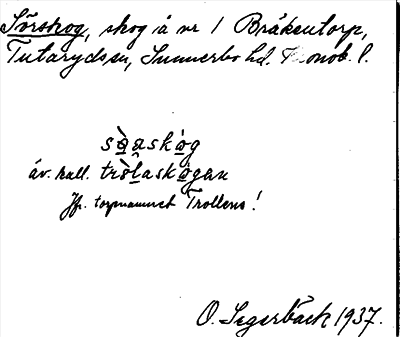 Sörskog, skog å nr 1 Bråkentorp,
Tutaryds sn, Sunnerbo hd. Kronob. l.
sọ̀ask̀ọg
äv. kall. trọ̀l̂askọ̀gan
Jfr. torpnamnet Trollens!
O. Segerbäck 1937.